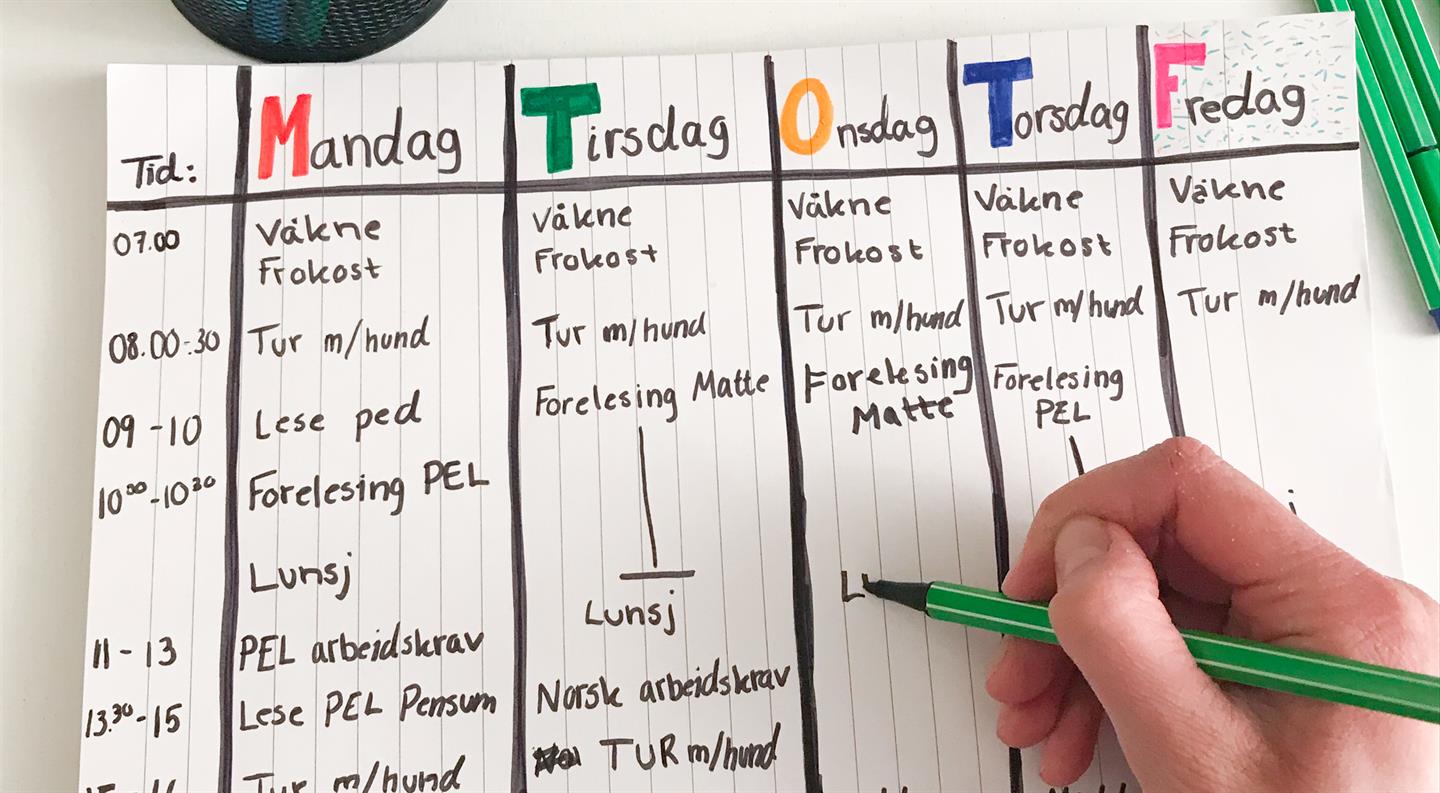 Tid: Mandag Tirsdag Onsdag Torsdag Fredag
07.00 Våkne Våkne Våkne Våkne Våkne
Frokost Frokost Frokost Frokost Frokost
08.00-.30 Tur m/hund Tur m/hund Tur m/hund Tur m/hund Tur m/hund
09-10 Lese ped Forelesing Matte Forelesing Forelesing
Matte PEL
10⁰⁰-10³⁰ Forelesing PEL
Lunsj Lunsj
11-13 PEL arbeidskrav
13.³⁰-15 Lese PEL Pensum Norsk arbeidskrav
TUR m/hund
Tur m/hund